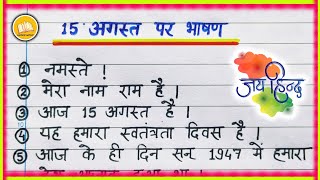 15 अगस्त पर भाषण
① नमस्ते !
② मेरा नाम राम है ।
③ आज 15 अगस्त है ।
④ यह हमारा स्वतंत्रता दिवस है ।
⑤ आज के ही दिन सन् 1947 में हमारा
जय हिन्द